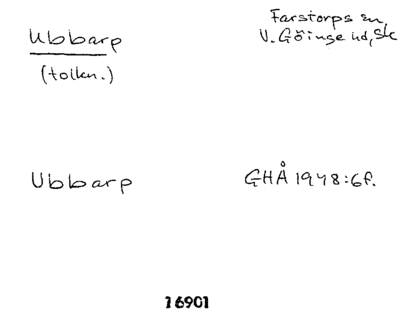 Ubbarp
(tolkn.)
Farstorps sn,
V. Göinge hd, Sk
Ubbarp
GHÅ 1948:6f.
16901